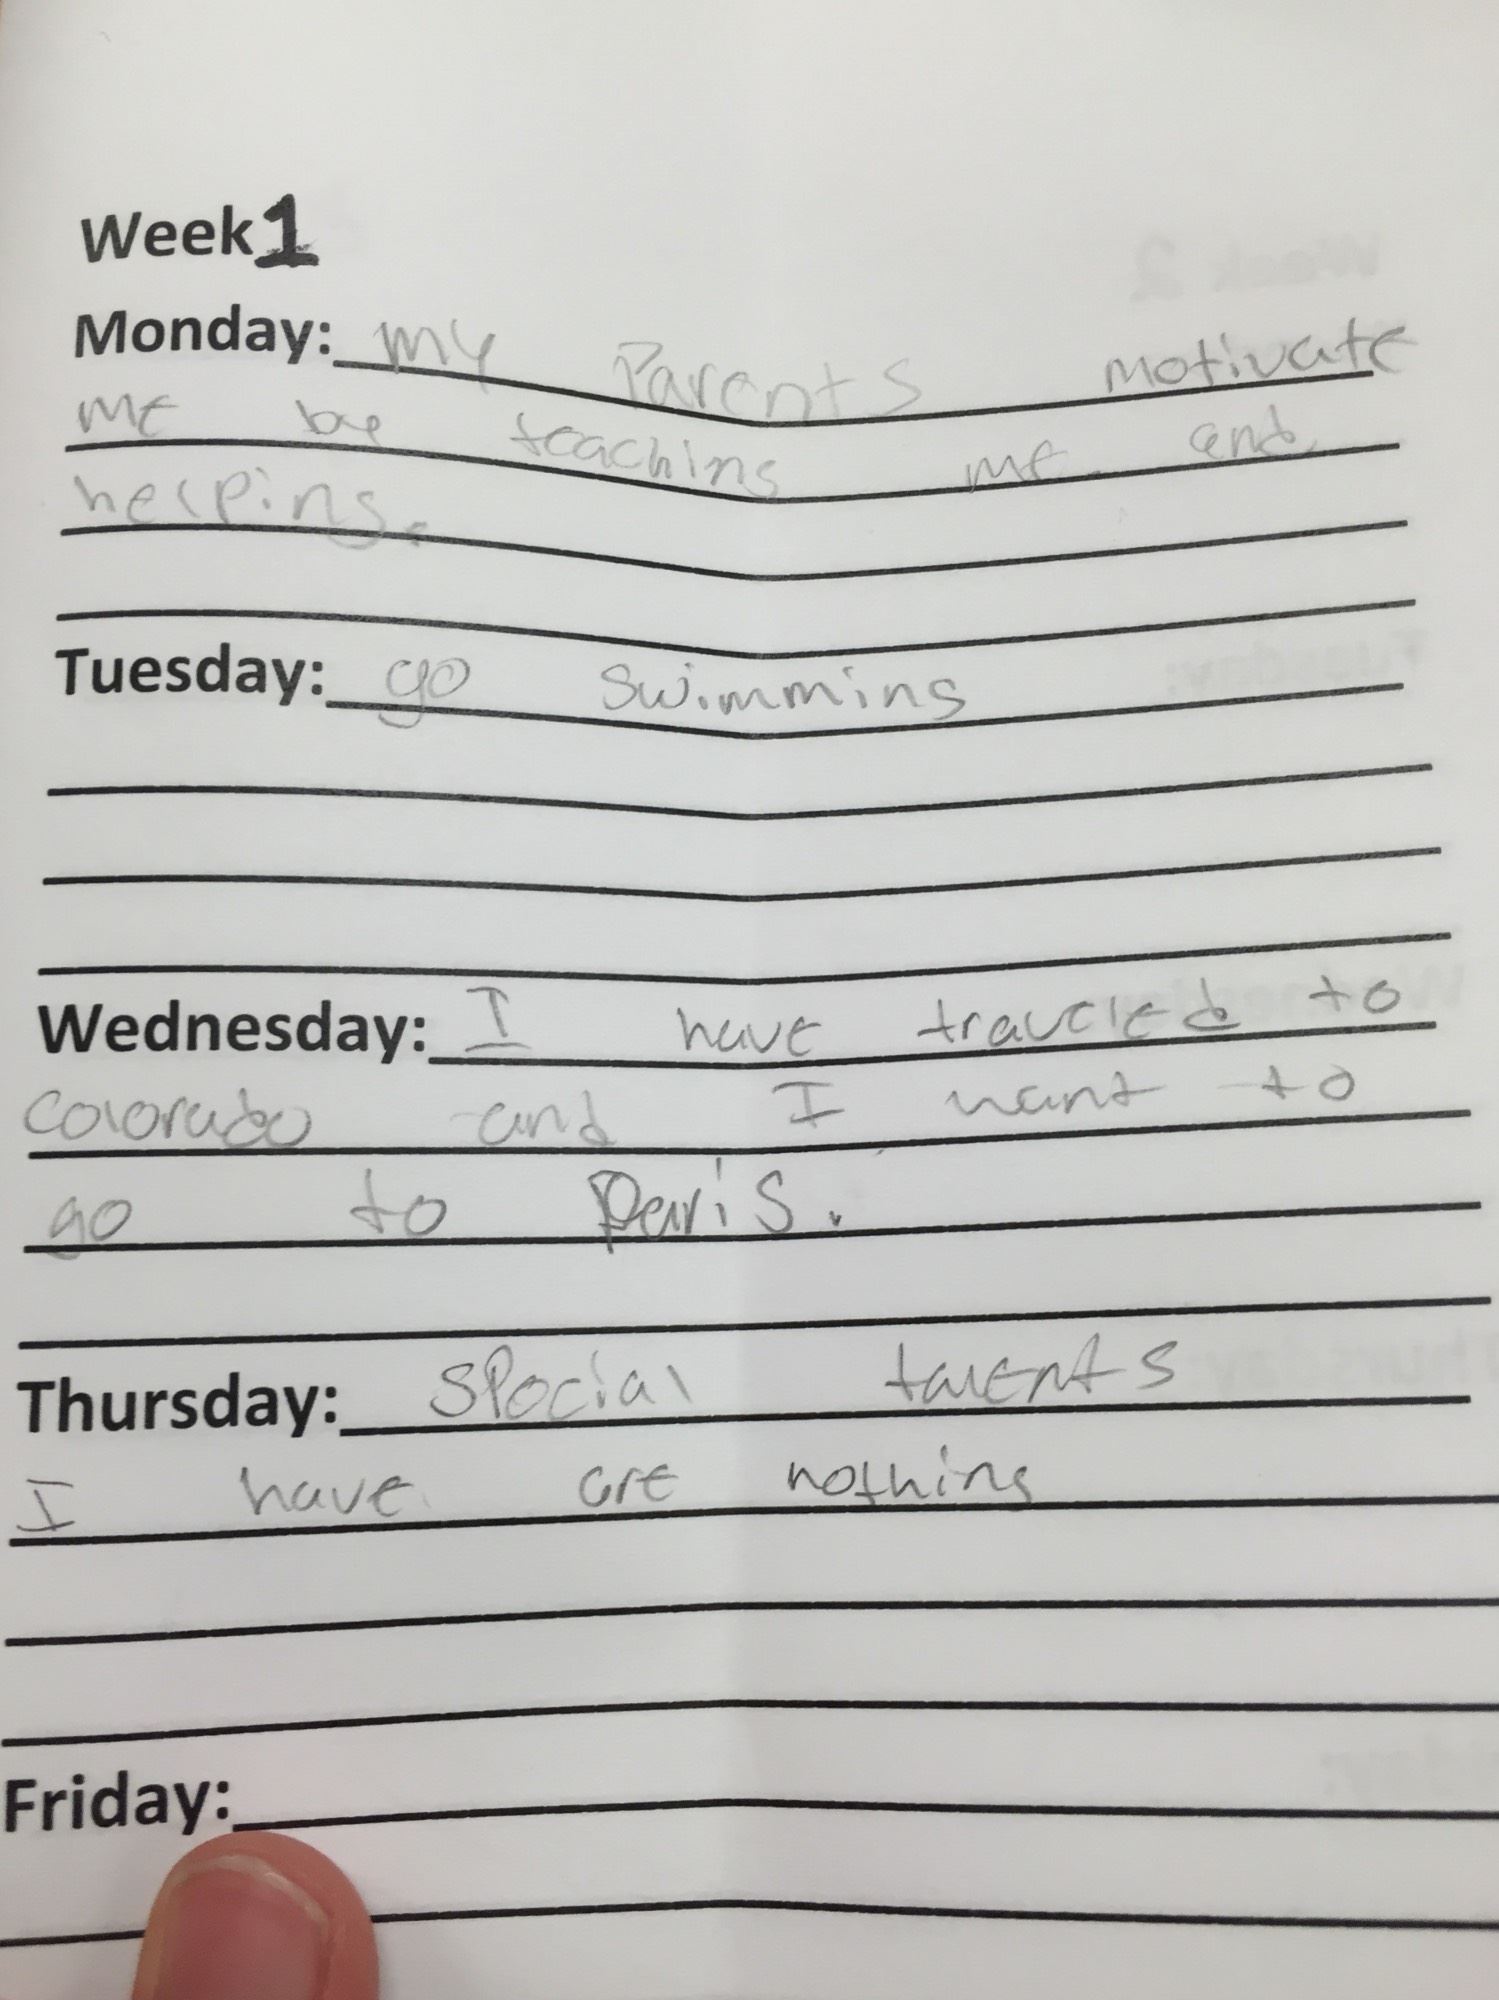 Week 1
Monday: my Parents motivate
me be teaching me and
helping.
Tuesday: go swimming
Wednesday: I have traveled to
Colorado and I want to
go to Paris.
Thursday: Spocial talents
I have are nothing
Friday: